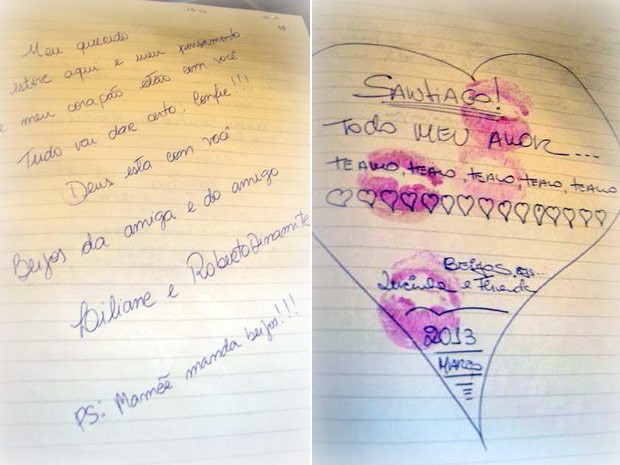 Meu querido
estive aqui e meu pensamento
e meu coração estão com você
Tudo vai dar certo. Confie!!!
Deus esta com você
Beijos da amiga e do amigo
Liliane e Roberto Dinamite
PS: Mamãe manda beijos!!!
SANTIAGO!
TODO MEU AMOR...
TE AMO, TE AMO, TE AMO, TE AMO, TE AMO
BEIJOS,
Lucinha e
2013
MARÇO